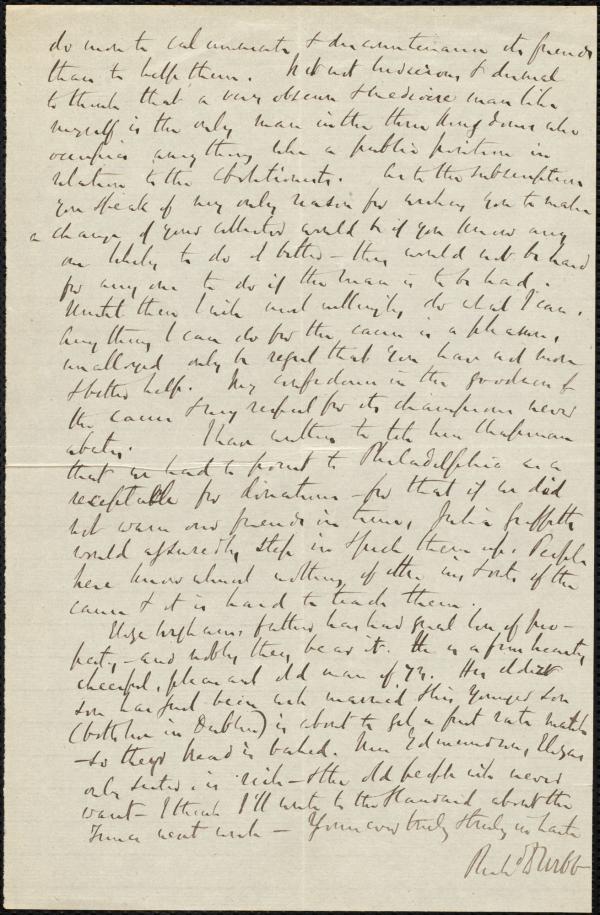 do more to calumniate & discountenance its friends
than to help them. Is it not ludicrous & dismal
to think that a very obscure & mediocre man like
myself is the only man in the three Kingdoms who
occupies anything like a public position in
relation to the abolitionists. As to the subscription
you speak of my only reason for wishing you to make
a change of your collector would be if you knew any
one likely to do it better – this would not be hard
for any one to do if the man is to be had.
Until then I will most willingly do what I can.
Anything I can do for the cause is a pleasure,
unalloyed only by regret that you have not more
& better help. My confidence in the goodness of
the cause & my respect for its champions never
abates. I have written to tell Mrs Chapman
that we had to point to Philadelphia as a
receptable for donations – for that if we did
not warn our friends in time, Julia Griffiths
would assuredly step in & pick them up. People
here know almost nothing of the ins & outs of the
cause & it is hard to teach them.
Eliza Wigham's father has had great loss of pro-
perty, – and nobly they bear it. He is a fine hearty,
cheerful, pleasant old man of 73. His eldest
son has just been well married & his younger son
(both live in Dublin) is about to get a first rate match
– so their bread is baked. Mrs Edmundson, Eliza's
only sister is rich – & the old people will never
want – I think I'll write to the Standard about the
Times next week – Yours ever truly & truly in haste
Richd D Webb